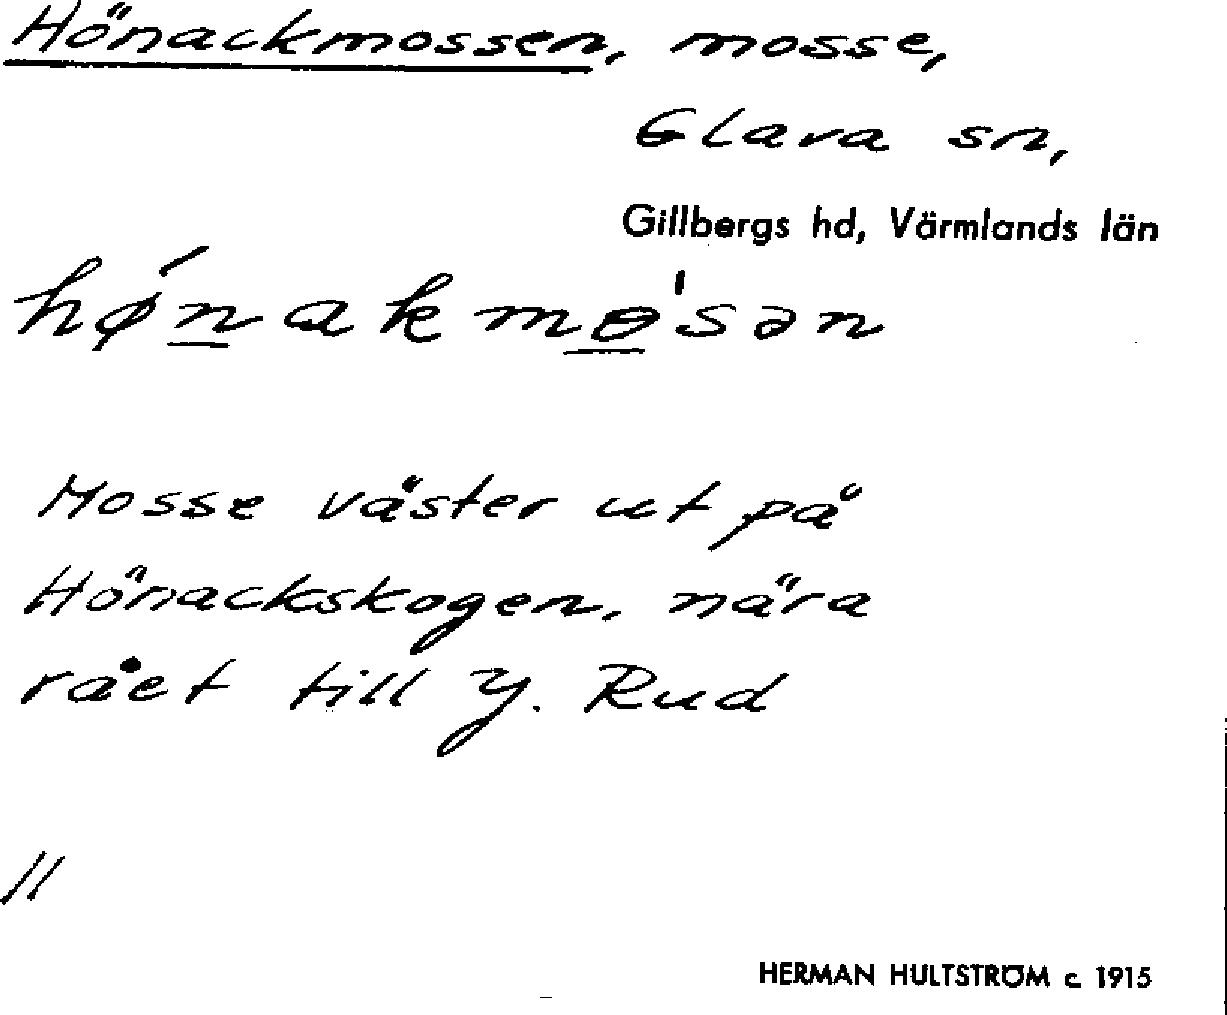 Hönackmossen, mosse,
Glava sn,
Gillbergs hd, Värmlands län
hǿnakmɵ'sən
Mosse väster ut på
Hönackskogen, nära
rået till Y. Rud
11
HERMAN HULTSTRÖM c. 1915